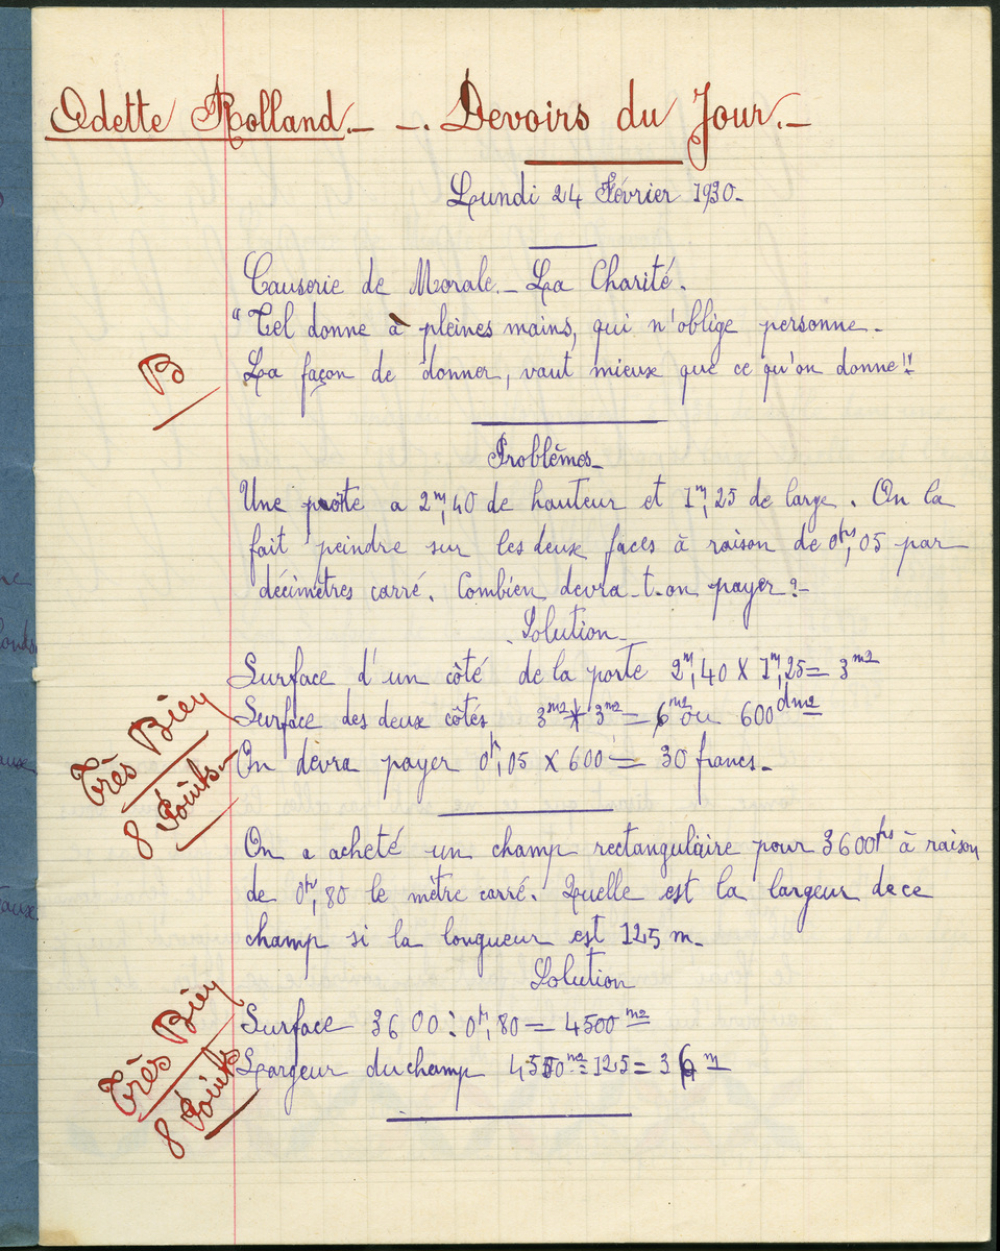 Odette Rolland. — —. Devoirs du Jour. —
Lundi 24 Février 1930.
Causerie de Morale. — La Charité.
"Tel donne à pleines mains, qui n'oblige personne.
La façon de donner, vaut mieux que ce qu'on donne!!
B
Problèmes
Une porte a 2m,40 de hauteur et 1m,25 de large. On la
fait peindre sur les deux faces à raison de 0frs,05 par
décimètres carré. Combien devra-t-on payer?
Solution
Surface d'un côté de la porte 2m,40 X 1m,25 = 3m2
Surface des deux côtés 3m2 + 3m2 = 6m2 ou 600dm2
On devra payer 0fr,05 X 600 = 30 francs.
Très Bien
8 Points.
On a acheté un champ rectangulaire pour 3600frs à raison
de 0fr,80 le mètre carré. Quelle est la largeur de ce
champ si la longueur est 125 m.
Solution
Surface 3600 : 0fr,80 = 4500m2
Largeur du champ 4500m2 : 125 = 36m
Très Bien
8 Points